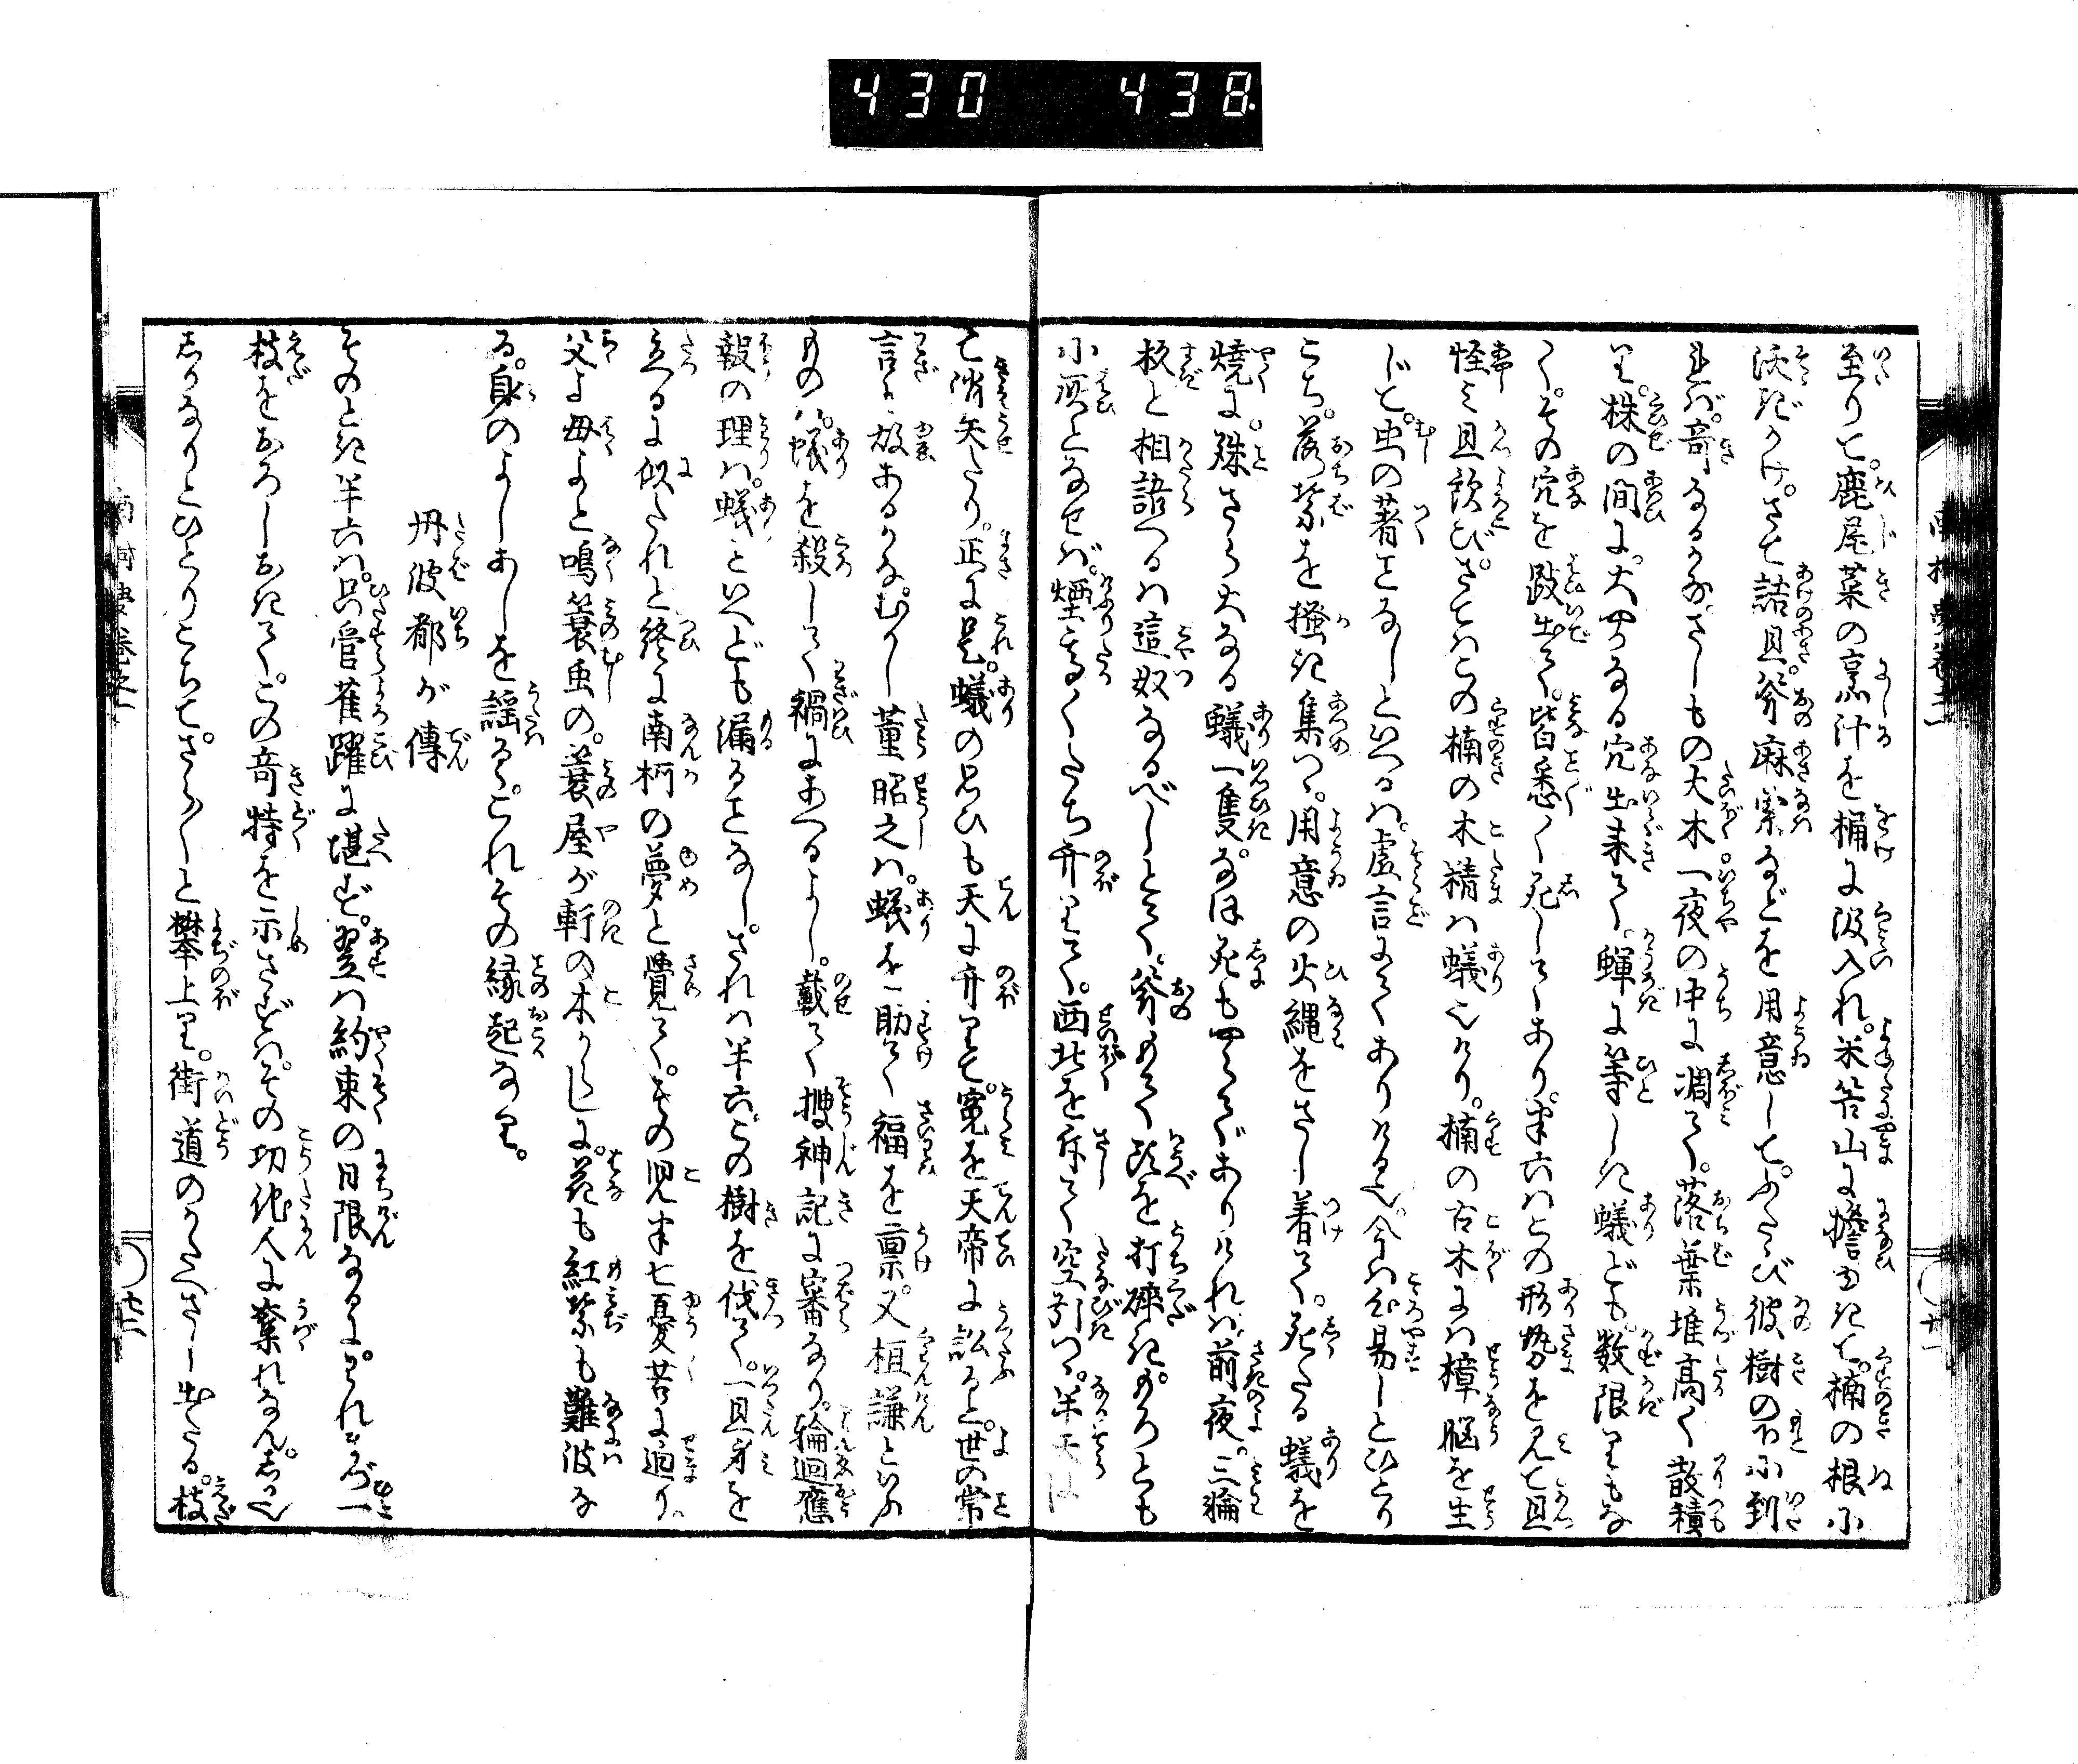 430 438
南柯夢巻之一
〇十一
至りて。鹿尾菜の烹汁を桶に汲入れ。米苔山に擔ゆきて。楠の根に
沃ぎかけ。さて詰且。斧麻索などを用意して。ふたゝび彼樹の下に到
れば。奇なるかな。さしもの大木。一夜の中に凋て。落葉堆高く散積
り。株の間に。大やうなる穴出来て。蟬に等しき蟻ども。数限りもな
く。その穴を跂出て。皆悉く死してあり。半六はこの形勢を見て且
怪み且歓び。さてはこの楠の木精は蟻也けり。楠の古木には樟脳を生
じて。虫の著ことなしといへるは。虚言にてありける也。今は心易しとひとり
こち。落葉を掻き集つゝ。用意の火縄をさし着て。死たる蟻を
焼に。殊さら大なる蟻一隻。なほ死もやらでありければ。前夜。三輪
杉と相語へるは這奴なるべしとて。斧もて頭を打砕き。もろとも
に灰となせば。煙高くたち升りて。西北を斥て空引つゝ。半天に
て消失たり。正に是。蟻の思ひも天に升りて。冤を天帝に訟ると。世の常
言に故あるかな。むかし董昭之は。蟻を助て福を禀。又桓謙といふ
ものは。蟻を殺して禍にあへるよし。載て捜神記に審なり。輪廻應
報の理は。蟻といへども漏ることなし。されば半六。この樹を伐て。一旦身を
立るに似たれど終に南柯の夢と覺て。その児半七憂苦に迫り。
父よ母よと鳴蓑虫の。蓑屋が軒の木がくしに。花も紅葉も難波な
る。身のよしあしを謡るゝ。これその縁起なり。
丹波都が傳
そのとき半六は。只管雀躍に堪ず。翌は約束の日限なるに。われまづ一
枝をおろしおきて。この奇特を示さずは。その功他人に奪れなん。しか也
しかなりとひとりこちて。さら〳〵と攀上り。街道のかたへさし出たる。枝
南柯夢巻之一
〇十二